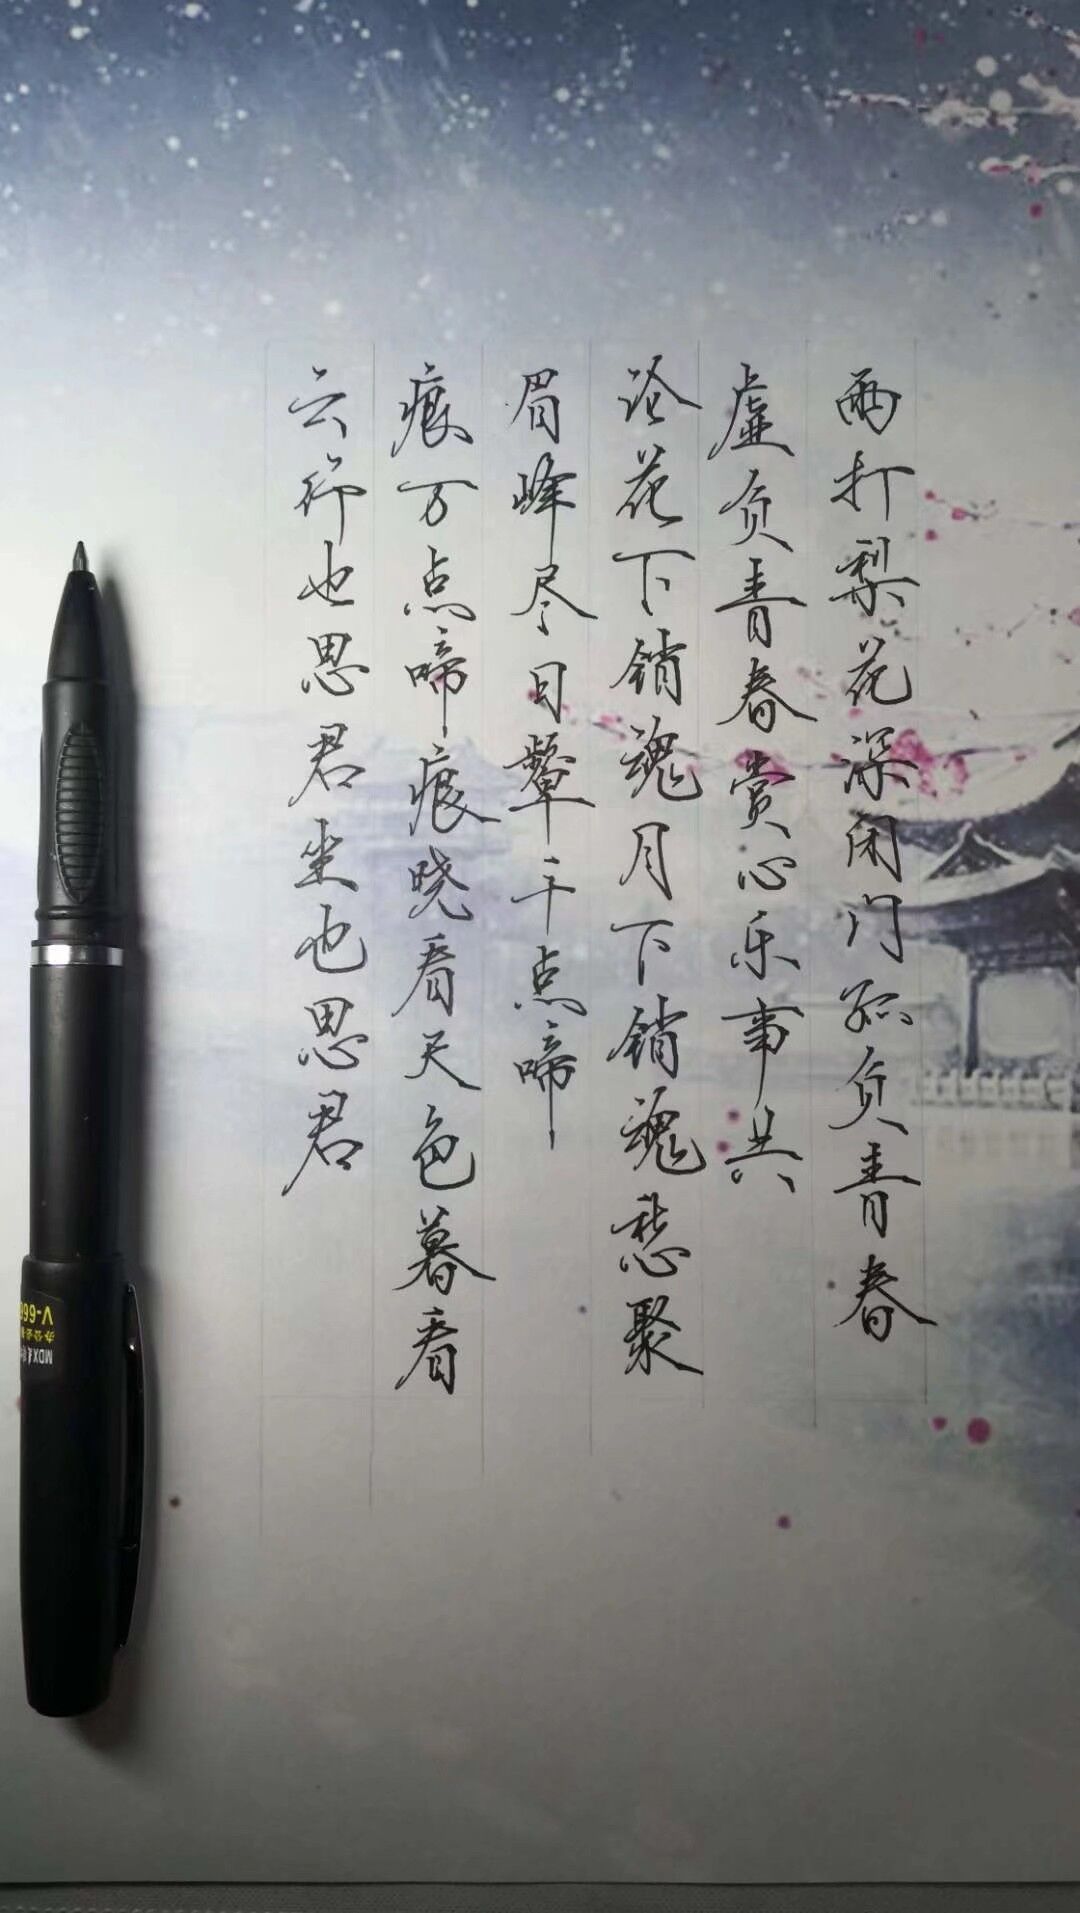 雨打梨花深闭门孤负青春
虚负青春赏心乐事共
论花下销魂月下销魂愁聚
眉峰尽日颦千点啼
痕万点啼痕晓看天色暮看
云行也思君坐也思君
V-666
MDX